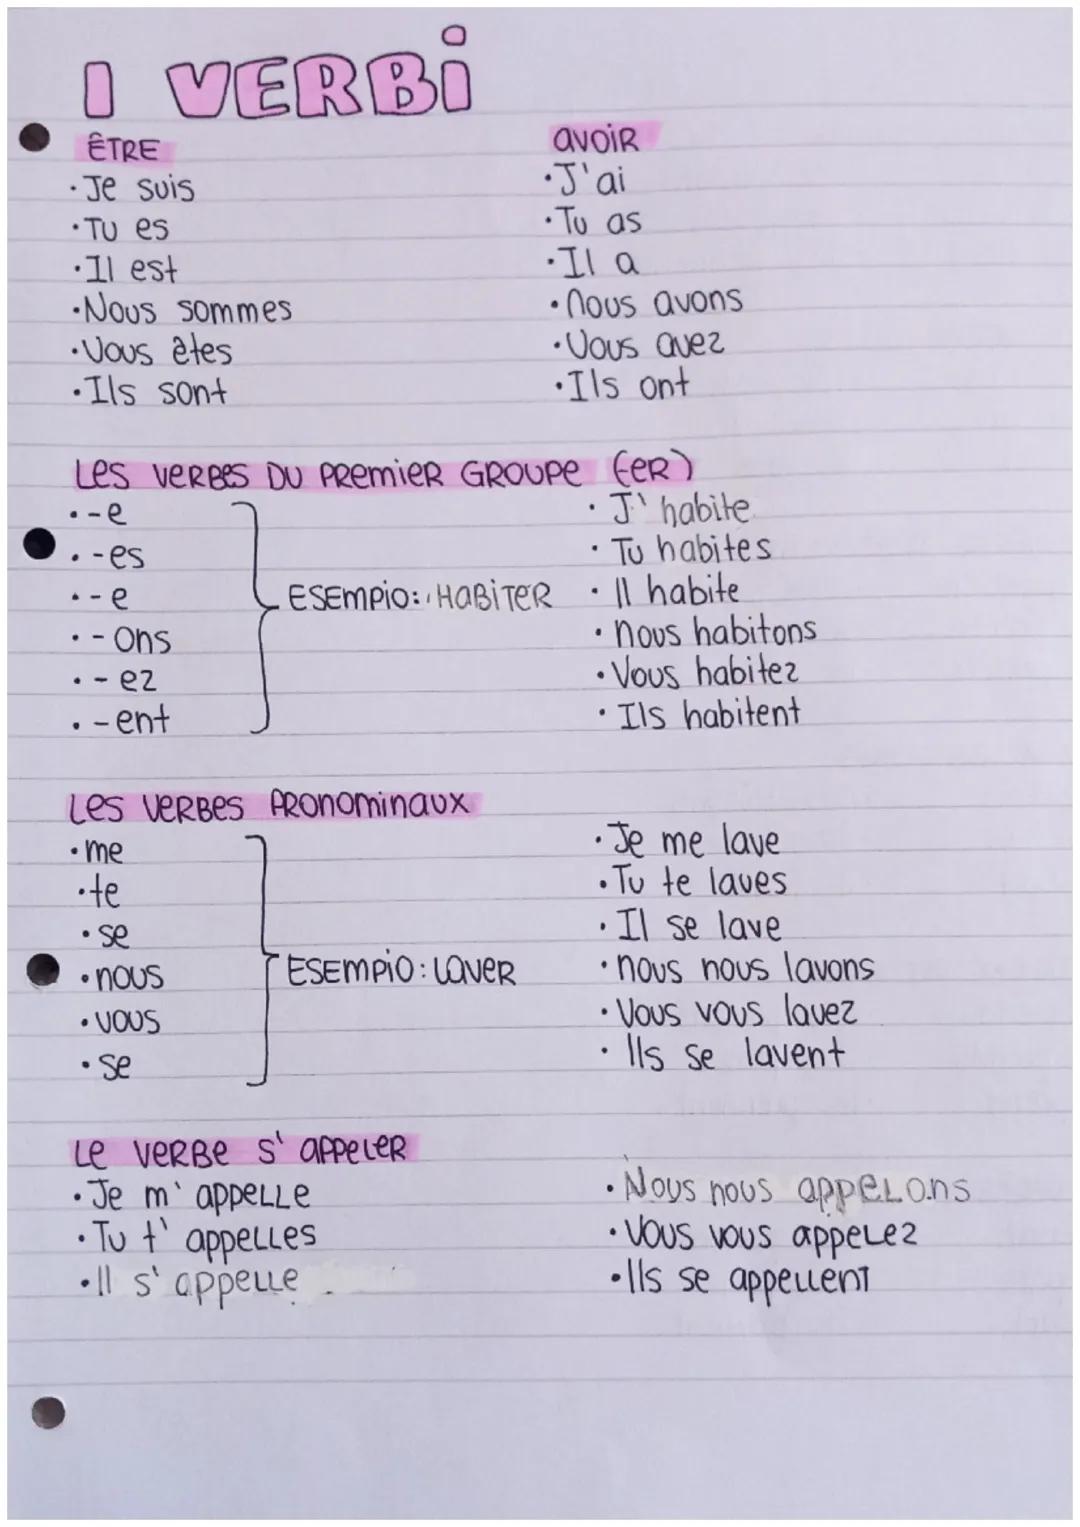 I VERBi
ÊTRE
· Je suis
· Tu es
· Il est
· Nous sommes
· Vous êtes
· Ils sont
AVOIR
· J'ai
· Tu as
· Il a
· nous avons
· Vous avez
· Ils ont
Les verbes du premier groupe (-ER)
· -e
· -es
· -e
· -ons
· -ez
· -ent
ESEMPIO: HABITER
· J'habite
· Tu habites
· Il habite
· nous habitons
· Vous habitez
· Ils habitent
Les verbes pronominaux
· me
· te
· se
· nous
· vous
· se
ESEMPIO: LAVER
· Je me lave
· Tu te laves
· Il se lave
· nous nous lavons
· Vous vous lavez
· Ils se lavent
Le verbe s'appeler
· Je m'appelle
· Tu t'appelles
· Il s'appelle
· Nous nous appelons
· Vous vous appelez
· Ils se appellent